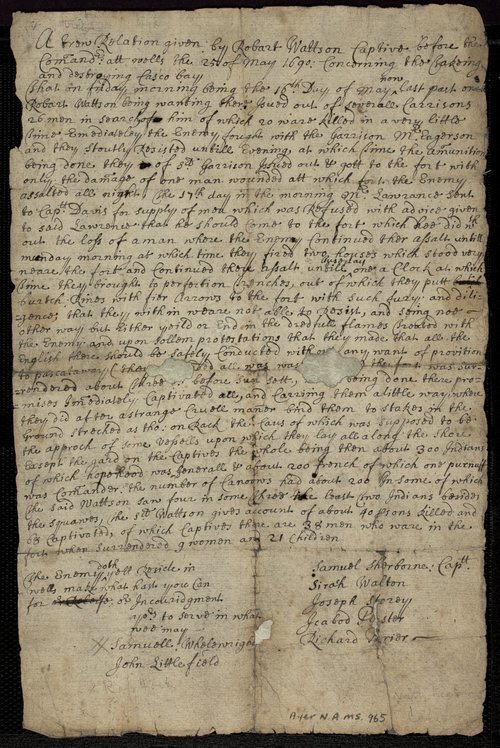 A trew Relation given by Robart Wattson Captive before the
Comand:rs att wells the 25th of May 1690: Concerning the takeing
and destroying Casco bay
That on friday morning being the 16th Day of May now last past one
Robart Wattson being wanting ther Isued out of severall Garrisons
26 men in search of him of which 20 ware killed in a very little
time Emediateley the Enemy fought with the Garrison Mr Egerson
and they stoutly Resisted untill Evening, at which time the Amunition
being done they of sd Garrison Isued out & gott to the fort with
only the damage of one man wounded att which fort the Enemy
assalted all night, The 17th day in the morning Mr Lawrance sent
to Captt Davis for supply of men which was Refused with advice given
to said Lawrence that he should come to the fort which hee did with
out the loss of a man where the Enemy Continued ther assalt untill
munday morning at which time they fired two houses which stood very
neare the fort and Continued there assalt untill one a Clock at which
time they brought to perfection trenches, out of which they putt
burtch Rines with fier Arrows to the fort with such fury and dili-
gences that they with in weare not able to Resist, and seing noe
other way but Either yeild or End in the dredfull flames treated with
the Enemy and upon sollem protestations that they made that all the
English there should be safely Conducted without any want of provition
to pascataway (they all was the fort was sur-
rendered about three before sun sett, being done there pro-
mises Imediately Captivated all, and Carring them a little way where
they did after a strange Cruell maner bind them to stakes in the
Ground streched as tho: on Rack the Caus of which was supposed to be
the approch of some vessells upon which they lay all along the Shore
Except the gard on the Captives the whole being then about 300 Indians
of which hopehood was Jenerall & about 200 french of which one purneff
was Comander. the number of Canoows had about 200 In some of which
The said Wattson saw four in some three the least two Indians besides
the squawes, the sd Wattson gives account of about 90 psons killed and
Captivated, of which Captives there are 38 men who ware in the
fort when surrendered 9 women and 21 Children
The Enemy doth yett Reside in
wells make what hast you Can
for or Incouridgment
to serve in what
wee may
Samuell Whelewright
John Littlefield
Samuel Sherborne: Captt.
Sirah Walton
Joseph Storey
Richard
Ayer N.A MS. 965